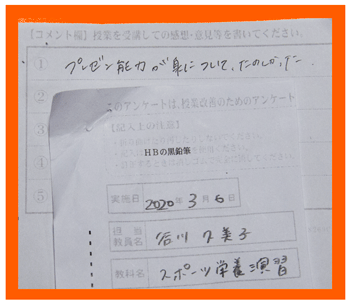 【コメント欄】授業を受講しての感想・意見等を書いてください。
① プレゼン能力が身について、たのしかった
2
3
4
5
このアンケートは、授業改善のためのアンケート
【記入上の注意】
HBの黒鉛筆
実施日 2020年3月6日
担当教員名 谷川久美子
教科名 スポーツ栄養演習